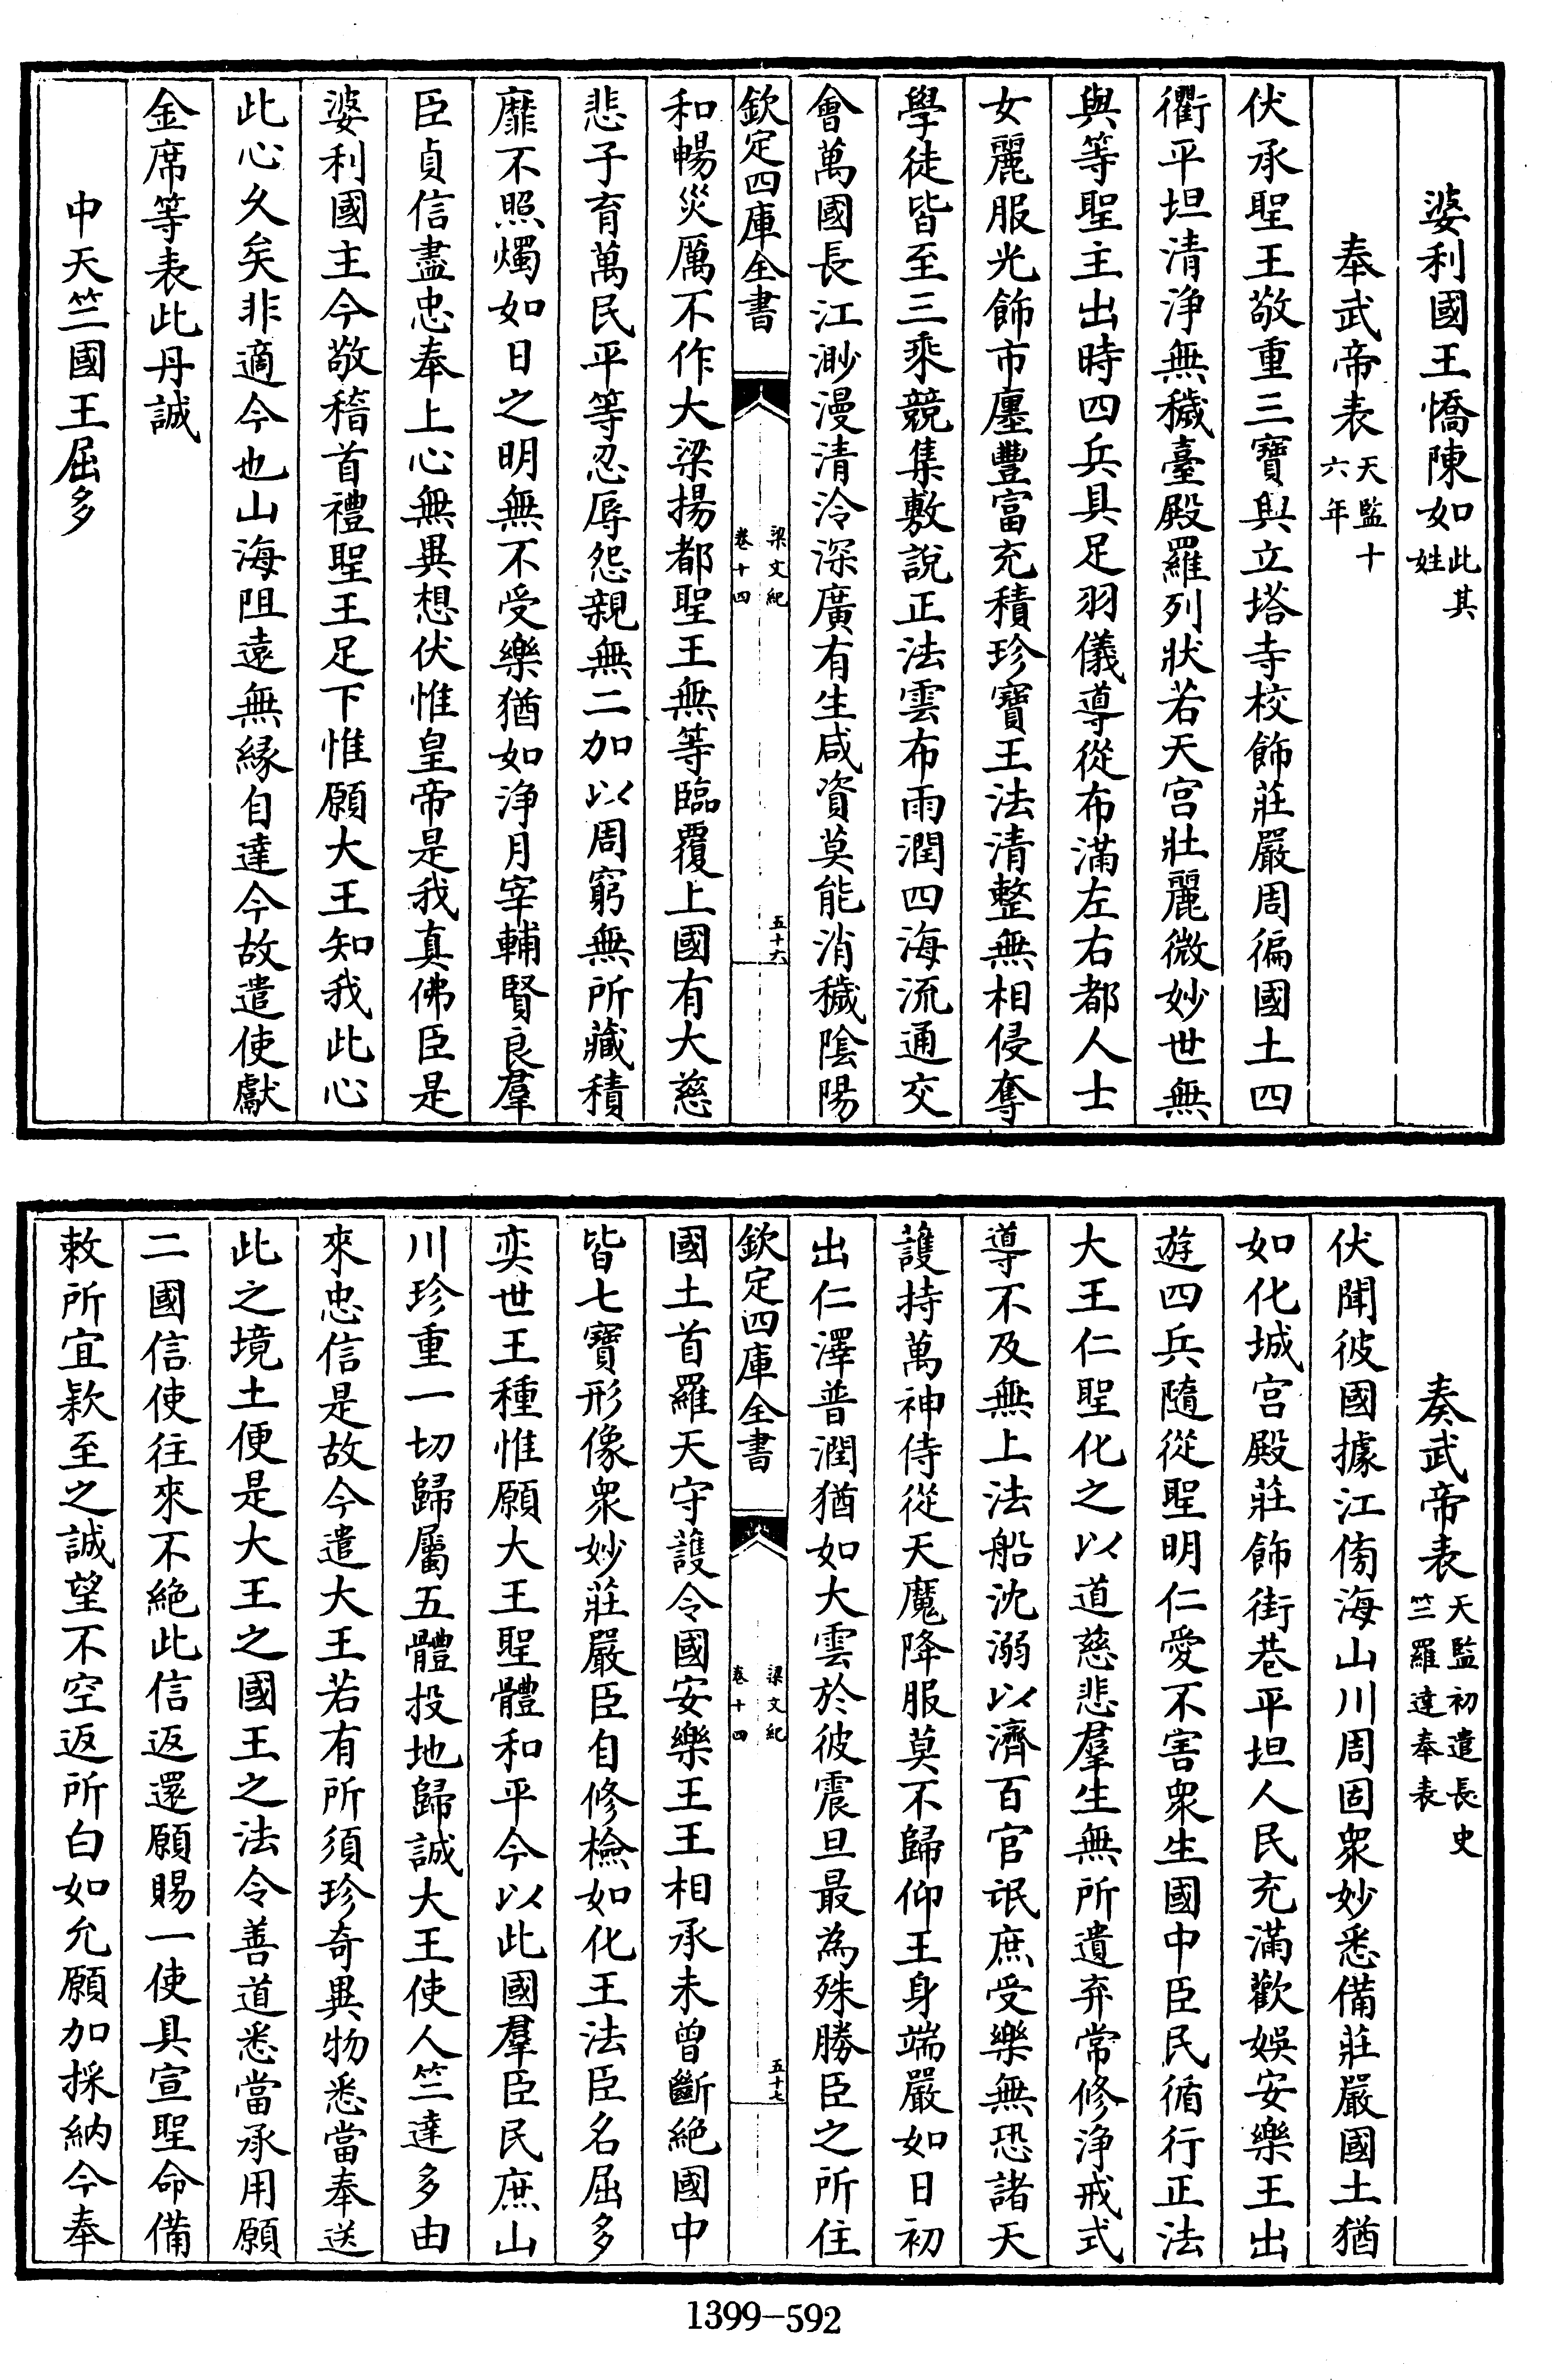 婆利國王憍陳如此其姓
奉武帝表天監十六年
伏承聖王敬重三寶與立塔寺校飾莊嚴周徧國土四
衢平坦清淨無穢臺殿羅列狀若天宮壯麗微妙世無
與等聖主出時四兵具足羽儀導從布滿左右都人士
女麗服光飾市廛豐富充積珍寶王法清整無相侵奪
學徒皆至三乘競集敷說正法雲布雨潤四海流通交
會萬國長江渺漫清泠深廣有生咸資莫能消穢陰陽
欽定四庫全書
梁文紀
卷十四
五十六
和暢災厲不作大梁揚都聖王無等臨覆上國有大慈
悲子育萬民平等忍辱怨親無二加以周窮無所藏積
靡不照燭如日之明無不受樂猶如淨月宰輔賢良羣
臣貞信盡忠奉上心無異想伏惟皇帝是我真佛臣是
婆利國主今敬稽首禮聖王足下惟願大王知我此心
此心久矣非適今也山海阻遠無緣自達今故遣使獻
金席等表此丹誠
中天竺國王屈多
奏武帝表天監初遣長史竺羅達奉表
伏聞彼國據江傍海山川周固衆妙悉備莊嚴國土猶
如化城宮殿莊飾街巷平坦人民充滿歡娛安樂王出
遊四兵隨從聖明仁愛不害衆生國中臣民循行正法
大王仁聖化之以道慈悲羣生無所遺弃常修淨戒式
導不及無上法船沈溺以濟百官氓庶受樂無恐諸天
護持萬神侍從天魔降服莫不歸仰王身端嚴如日初
出仁澤普潤猶如大雲於彼震旦最為殊勝臣之所住
欽定四庫全書
梁文紀
卷十四
五十七
國土首羅天守護令國安樂王王相承未曾斷絶國中
皆七寶形像衆妙莊嚴臣自修檢如化王法臣名屈多
奕世王種惟願大王聖體和平今以此國羣臣民庶山
川珍重一切歸屬五體投地歸誠大王使人竺達多由
來忠信是故今遣大王若有所須珍奇異物悉當奉送
此之境土便是大王之國王之法令善道悉當承用願
二國信使往來不絶此信返還願賜一使具宣聖命備
敕所宜款至之誠望不空返所白如允願加採納今奉
1399-592